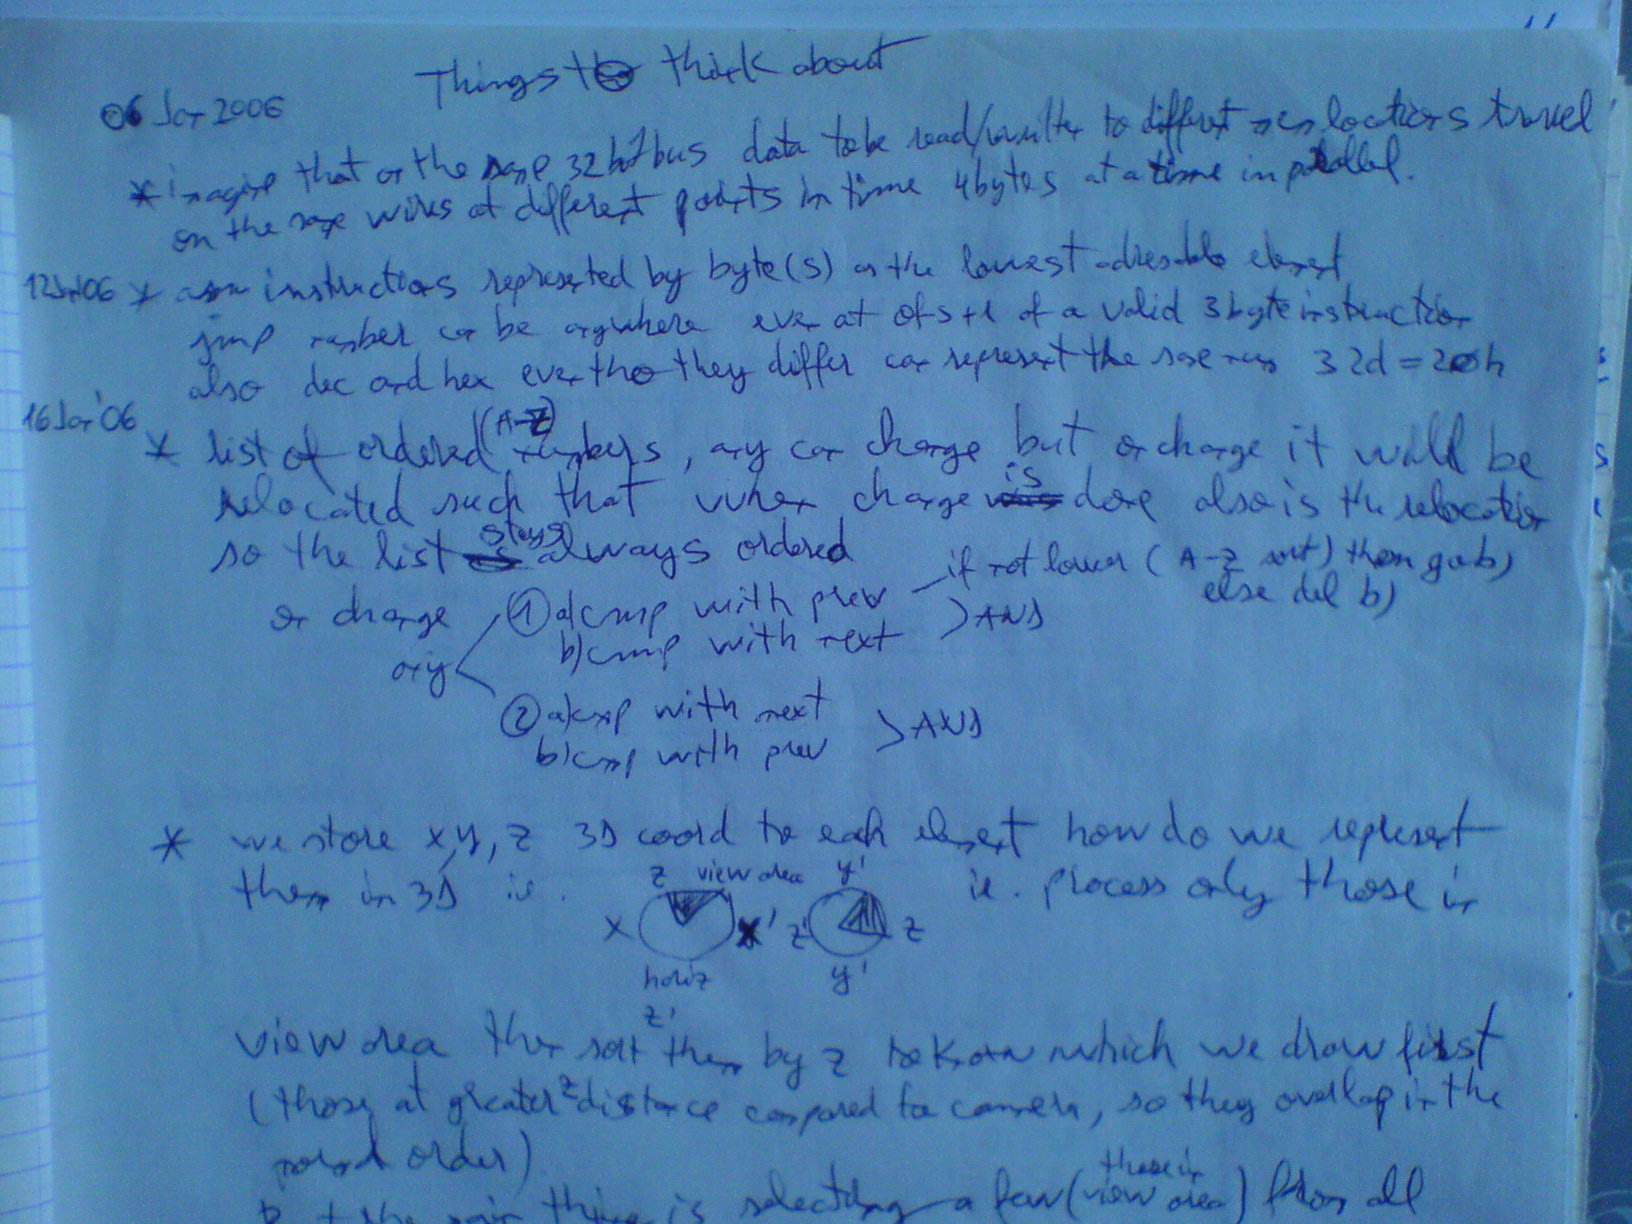 Things to think about
06 Jan 2006
* imagine that on the same 32bit bus data to be read/written to different mem locations travel
on the same wires at different points in time 4bytes at a time in parallel.
12Jan06 * asm instructions represented by byte(s) as the lowest adresable element
jmp number can be anywhere even at ofs+1 of a valid 3byte instruction
also dec and hex even tho they differ can represent the same num 32d = 20h
16Jan'06
* list of ordered (A-Z) numbers, any can change but on change it will be
relocated such that when change is done also is the relocation
so the list stays always ordered
on change
only
① a) cmp with prev — if not lower (A-Z sort) then go b)
else del b)
b) cmp with next > AND
② a) cmp with next
b) cmp with prev > AND
* we store x,y,z 3D coord to each element how do we represent
them in 3D ie. ie. process only those in
z view area y'
x x' z' z
horiz y'
z'
view area then sort them by z to know which we draw first
(those at greater z distance compared to camera, so they overlap in the
normal order)
But the main thing is selecting a few (those in view area) from all